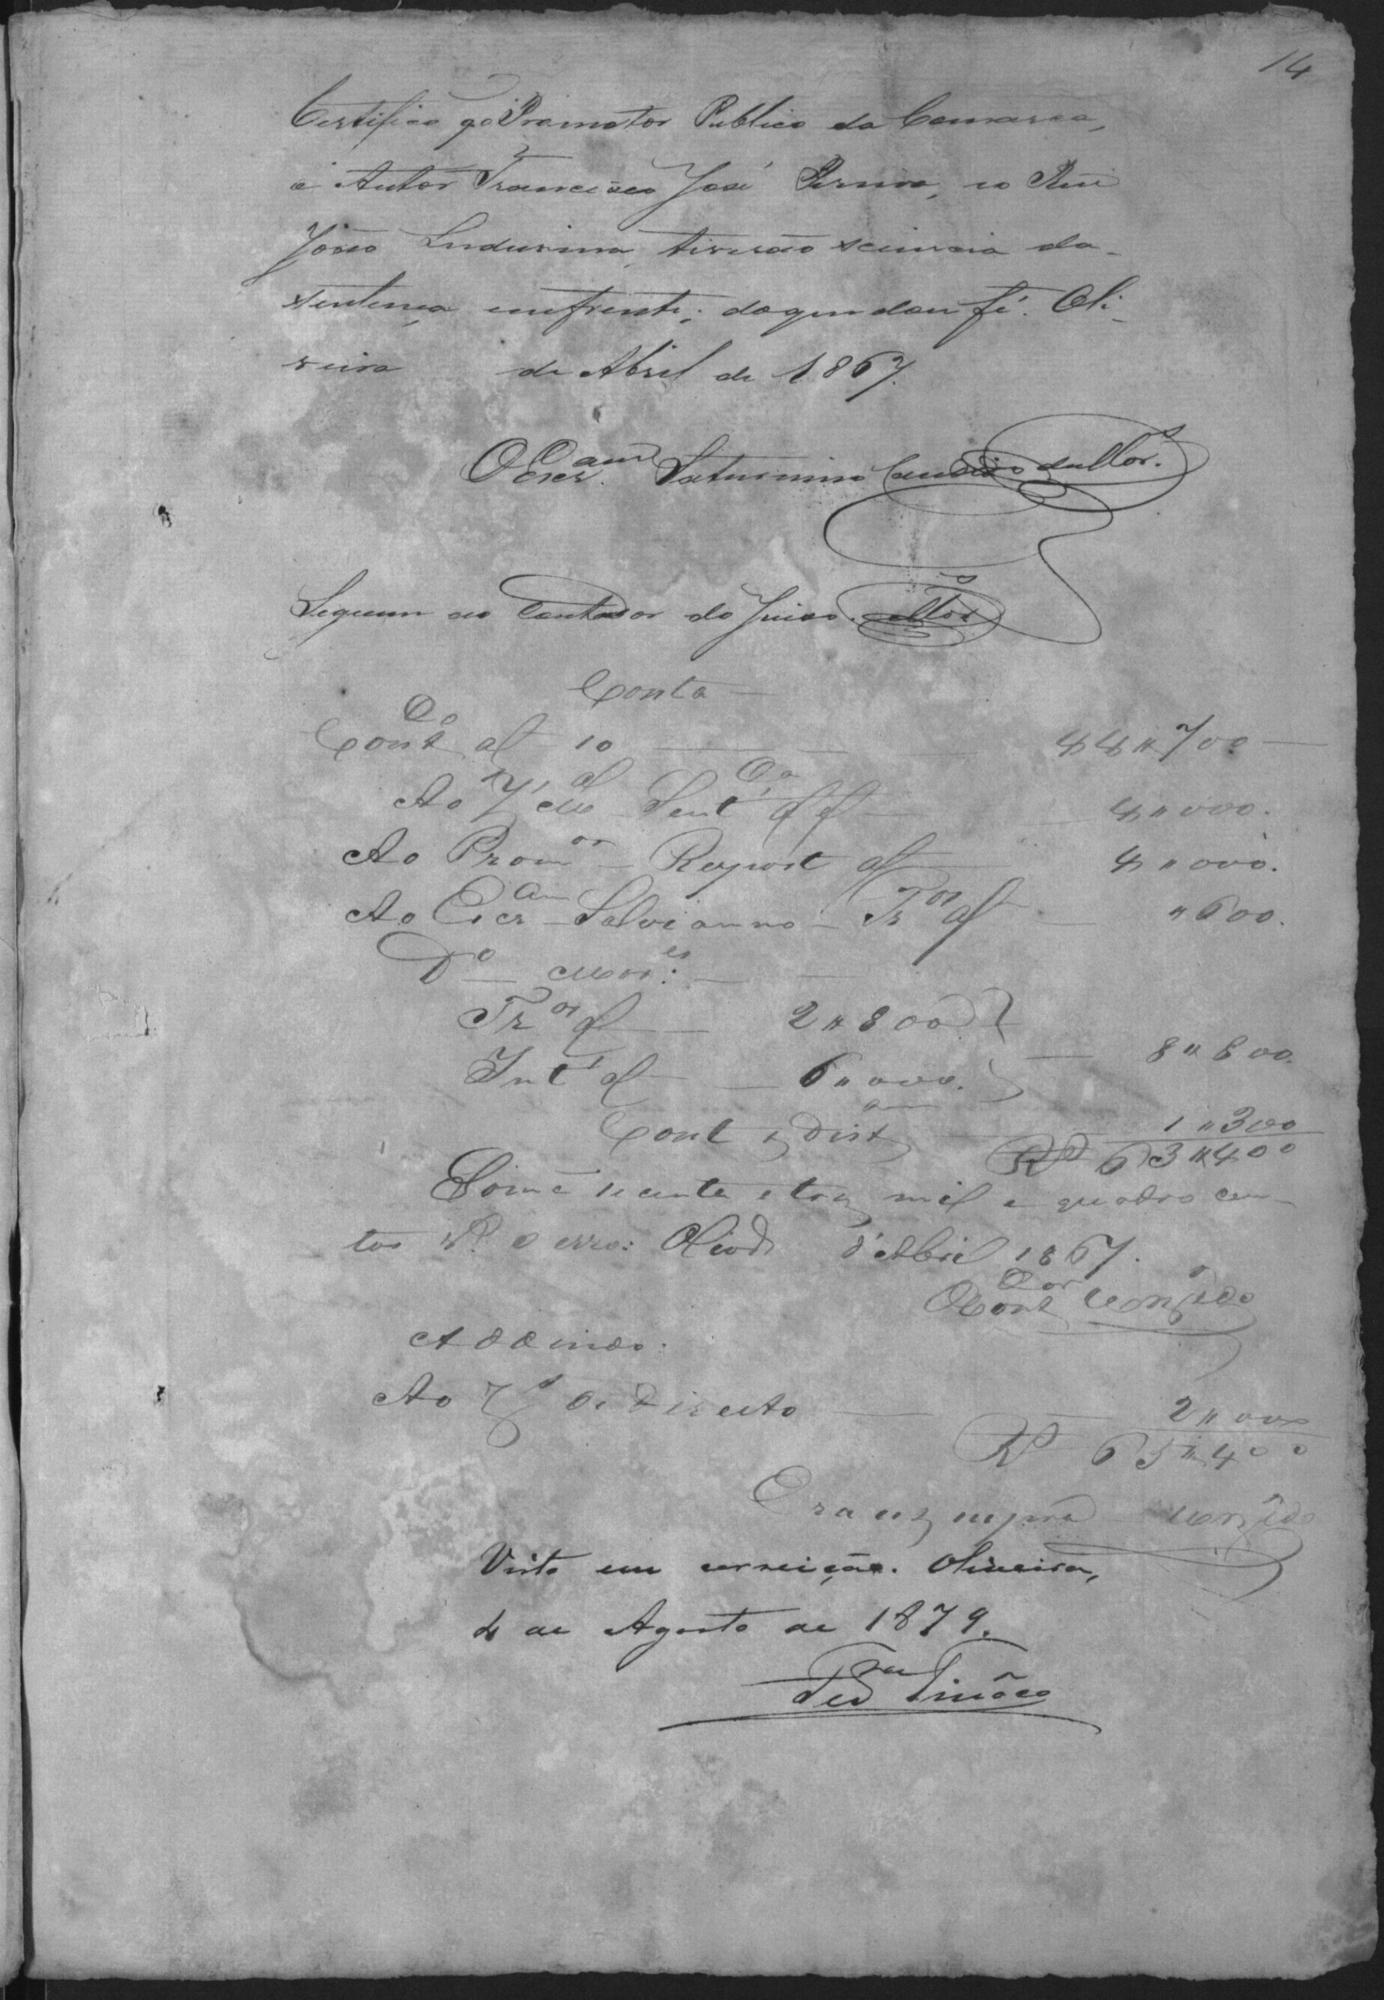 14
Certifico q' o Promotor Publico da Comarca,
o Autor Francisco José, e o Reu
João tiverão sciencia da
sentença emfrente; do que dou fé. Oli-
veira de Abril de 1867.
O Escr.am Saturnino Candido de Mor.s
Seguem ao Contador do Juizo. Mor.s
Conta
Cont.do af 10 44"700
Ao J.s M.al Sent.ça af 4"000.
Ao Prom.or Respost af 4"000.
Ao Escr.am Salvianno Tr.os af "600.
D.o Mor.es
Tr.os af 2"800
Int af 6"000. 8"800.
Cont e dist 1"300
R.s 63"400
Som e tres mil e quatro cen-
tos r.s o erro: Oliv.a d'Abril 1867.
O Cont.or
Addindo:
Ao J.s de Direito 2"000
R.s 65"400
Era ut supra
Visto em correição. Oliveira,
4 de Agosto de 1879.
Tinôco